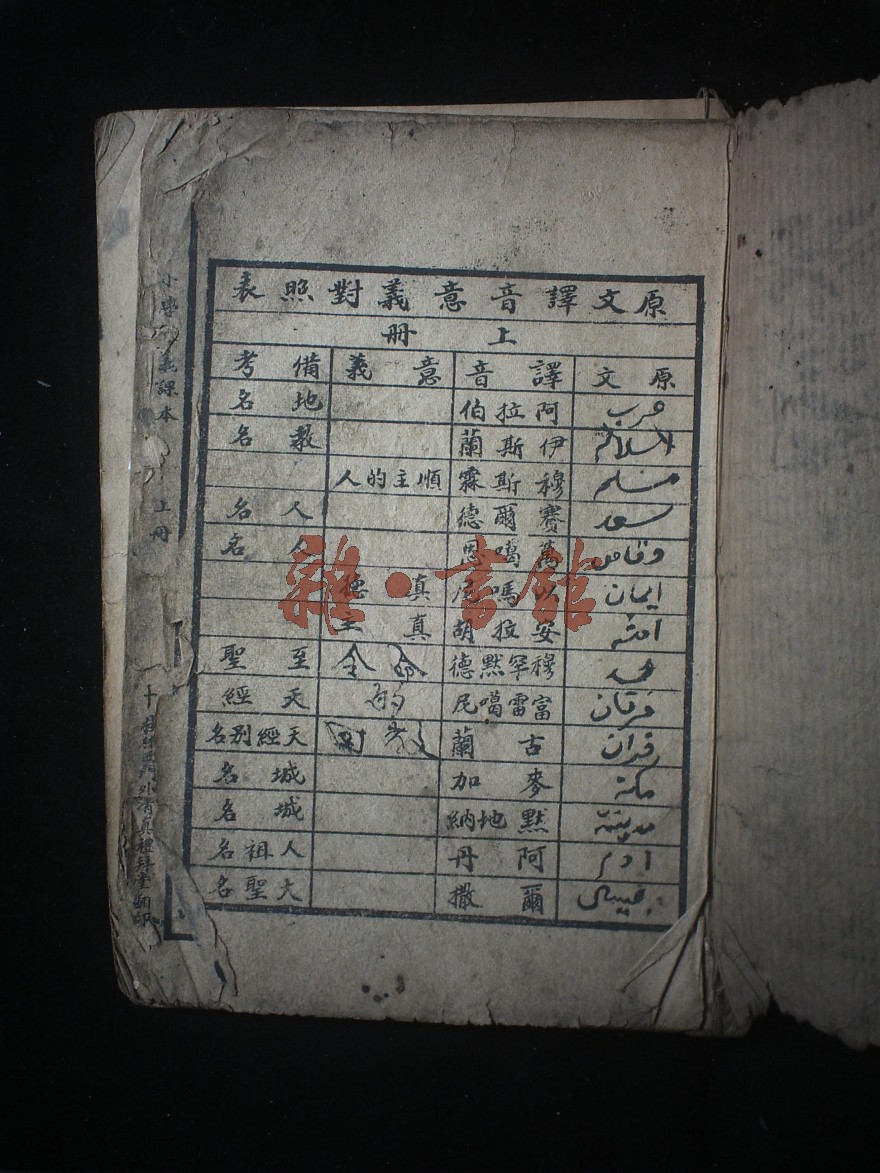 原文譯音意義對照表
上冊
原文 譯音 意義 備考
عرب 阿拉伯 地名
اسلام 伊斯蘭 教名
مسلم 穆斯霖 順主的人
سعد 賽爾德 人名
وقاص 萬噶思 人名
ايمان 以嗎尼 真德
الله 安拉胡 真主
محمد 穆罕默德 至聖
فرقان 富雷噶尼 的 天經
قران 古蘭 天經別名
مكة 麥加 城名
مدينة 默地納 城名
ادم 阿丹 人祖名
عيسى 爾撒 大聖名
義課本
上冊
門外清真禮拜堂翻印
雜·書館